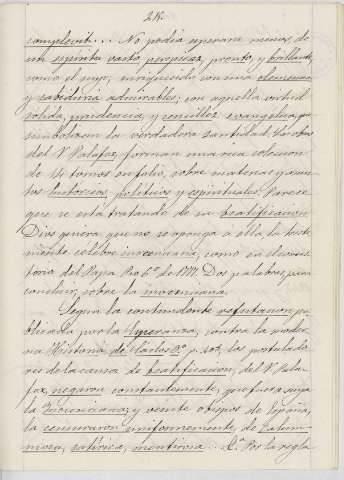 28.
complevit... No podía esperarse menos de
un espíritu vasto, perspicaz, pronto, y brillante
como el suyo; enriquecido con una elocuencia
y sabiduría admirables; con aquella virtud
sólida, prudencia, y sencillez evangélica, que
simbolizan la verdadera santidad. Las obras
del V. Palafox, forman una rica colección
de 14 tomos en folio, sobre materias y asun
tos históricos, políticos y espirituales. Parece
que se está tratando de su beatificación
Dios quiera que no se oponga a ella la triste
mente célebre inocenciana, como en el consis
torio del Papa Pio 6º de 1777. Dos palabras, para
concluir, sobre la inocenciana.
Según la contundente refutación pu
blicada por la Esperanza, contra la moder
na Historia de Carlos 3º p. los postulado
res de la causa de beatificación, del V. Pala
fox, negaron constantemente, que fuera suya
la Inocenciana; y veinte obispos de España,
la censuraron uniformemente, de Calum
niosa, satírica, mentirosa... Por la regla